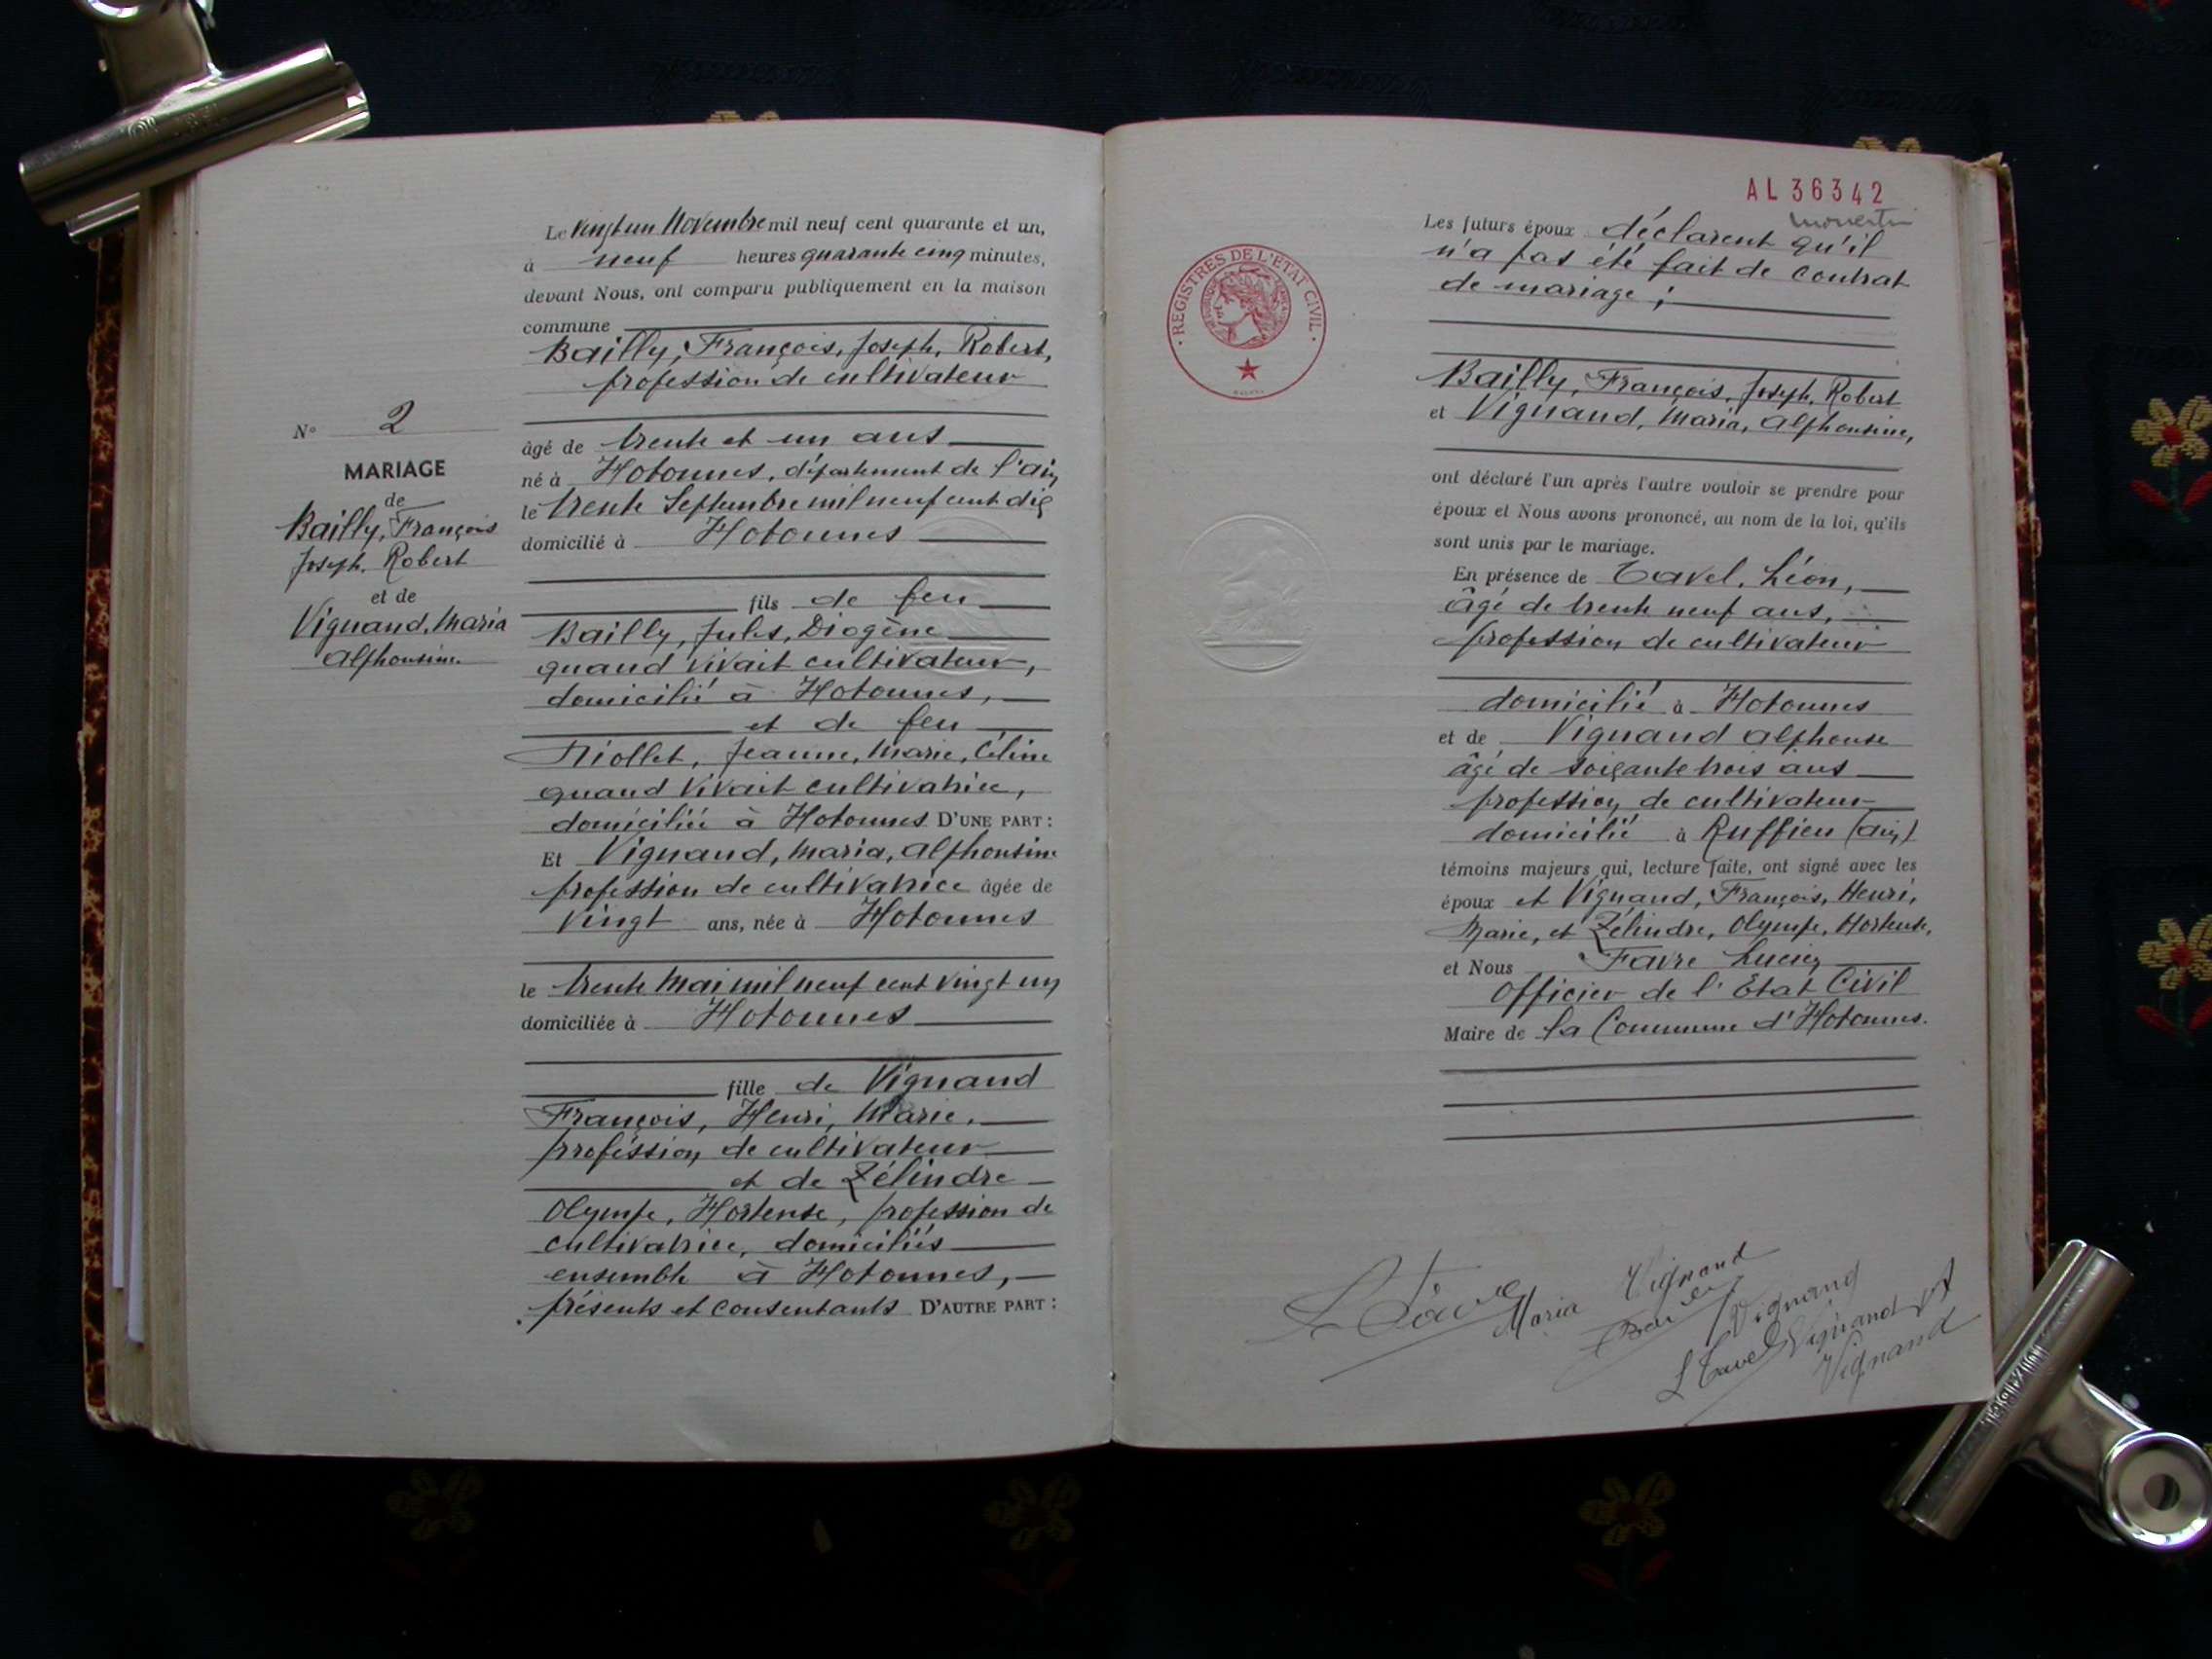 N° 2
MARIAGE
de
Bailly, François
Joseph, Robert
et de
Vignand, Maria
Alphonsine
Le vingt un Novembre mil neuf cent quarante et un,
à neuf heures quarante cinq minutes,
devant Nous, ont comparu publiquement en la maison
commune
Bailly, François, Joseph, Robert,
profession de cultivateur
âgé de trente et un ans
né à Hotonnes, département de l'Ain
le trente Septembre mil neuf cent dix
domicilié à Hotonnes
fils de feu
Bailly, Jules, Diogène
quand vivait cultivateur,
domicilié à Hotonnes,
et de feu
Niollet, Jeanne, Marie, Céline
quand vivait cultivatrice,
domiciliée à Hotonnes D'UNE PART :
Et Vignand, Maria, Alphonsine
profession de cultivatrice âgée de
vingt ans, née à Hotonnes
le trente Mai mil neuf cent vingt un
domiciliée à Hotonnes
fille de Vignand
François, Henri, Marie,
profession de cultivateur
et de Zélindre
Olympe, Hortense, profession de
cultivatrice, domiciliés
ensemble à Hotonnes,
présents et consentants D'AUTRE PART :
AL 36342
REGISTRES DE L'ETAT CIVIL
Les futurs époux déclarent qu'il
n'a pas été fait de contrat
de mariage ;
Bailly, François, Joseph, Robert
et Vignand, Maria, Alphonsine,
ont déclaré l'un après l'autre vouloir se prendre pour
époux et Nous avons prononcé, au nom de la loi, qu'ils
sont unis par le mariage.
En présence de Tavel, Léon,
âgé de trente neuf ans,
profession de cultivateur
domicilié à Hotonnes
et de Vignand Alphonse
âgé de soixante trois ans
profession de cultivateur
domicilié à Ruffieu (Ain)
témoins majeurs qui, lecture faite, ont signé avec les
époux et Vignand, François, Henri,
Marie, et Zélindre, Olympe, Hortense,
et Nous Favre Lucien
Officier de l'Etat Civil
Maire de la Commune d'Hotonnes.
Maria Vignand
Vignand
L Tavel Vignand
Vignand